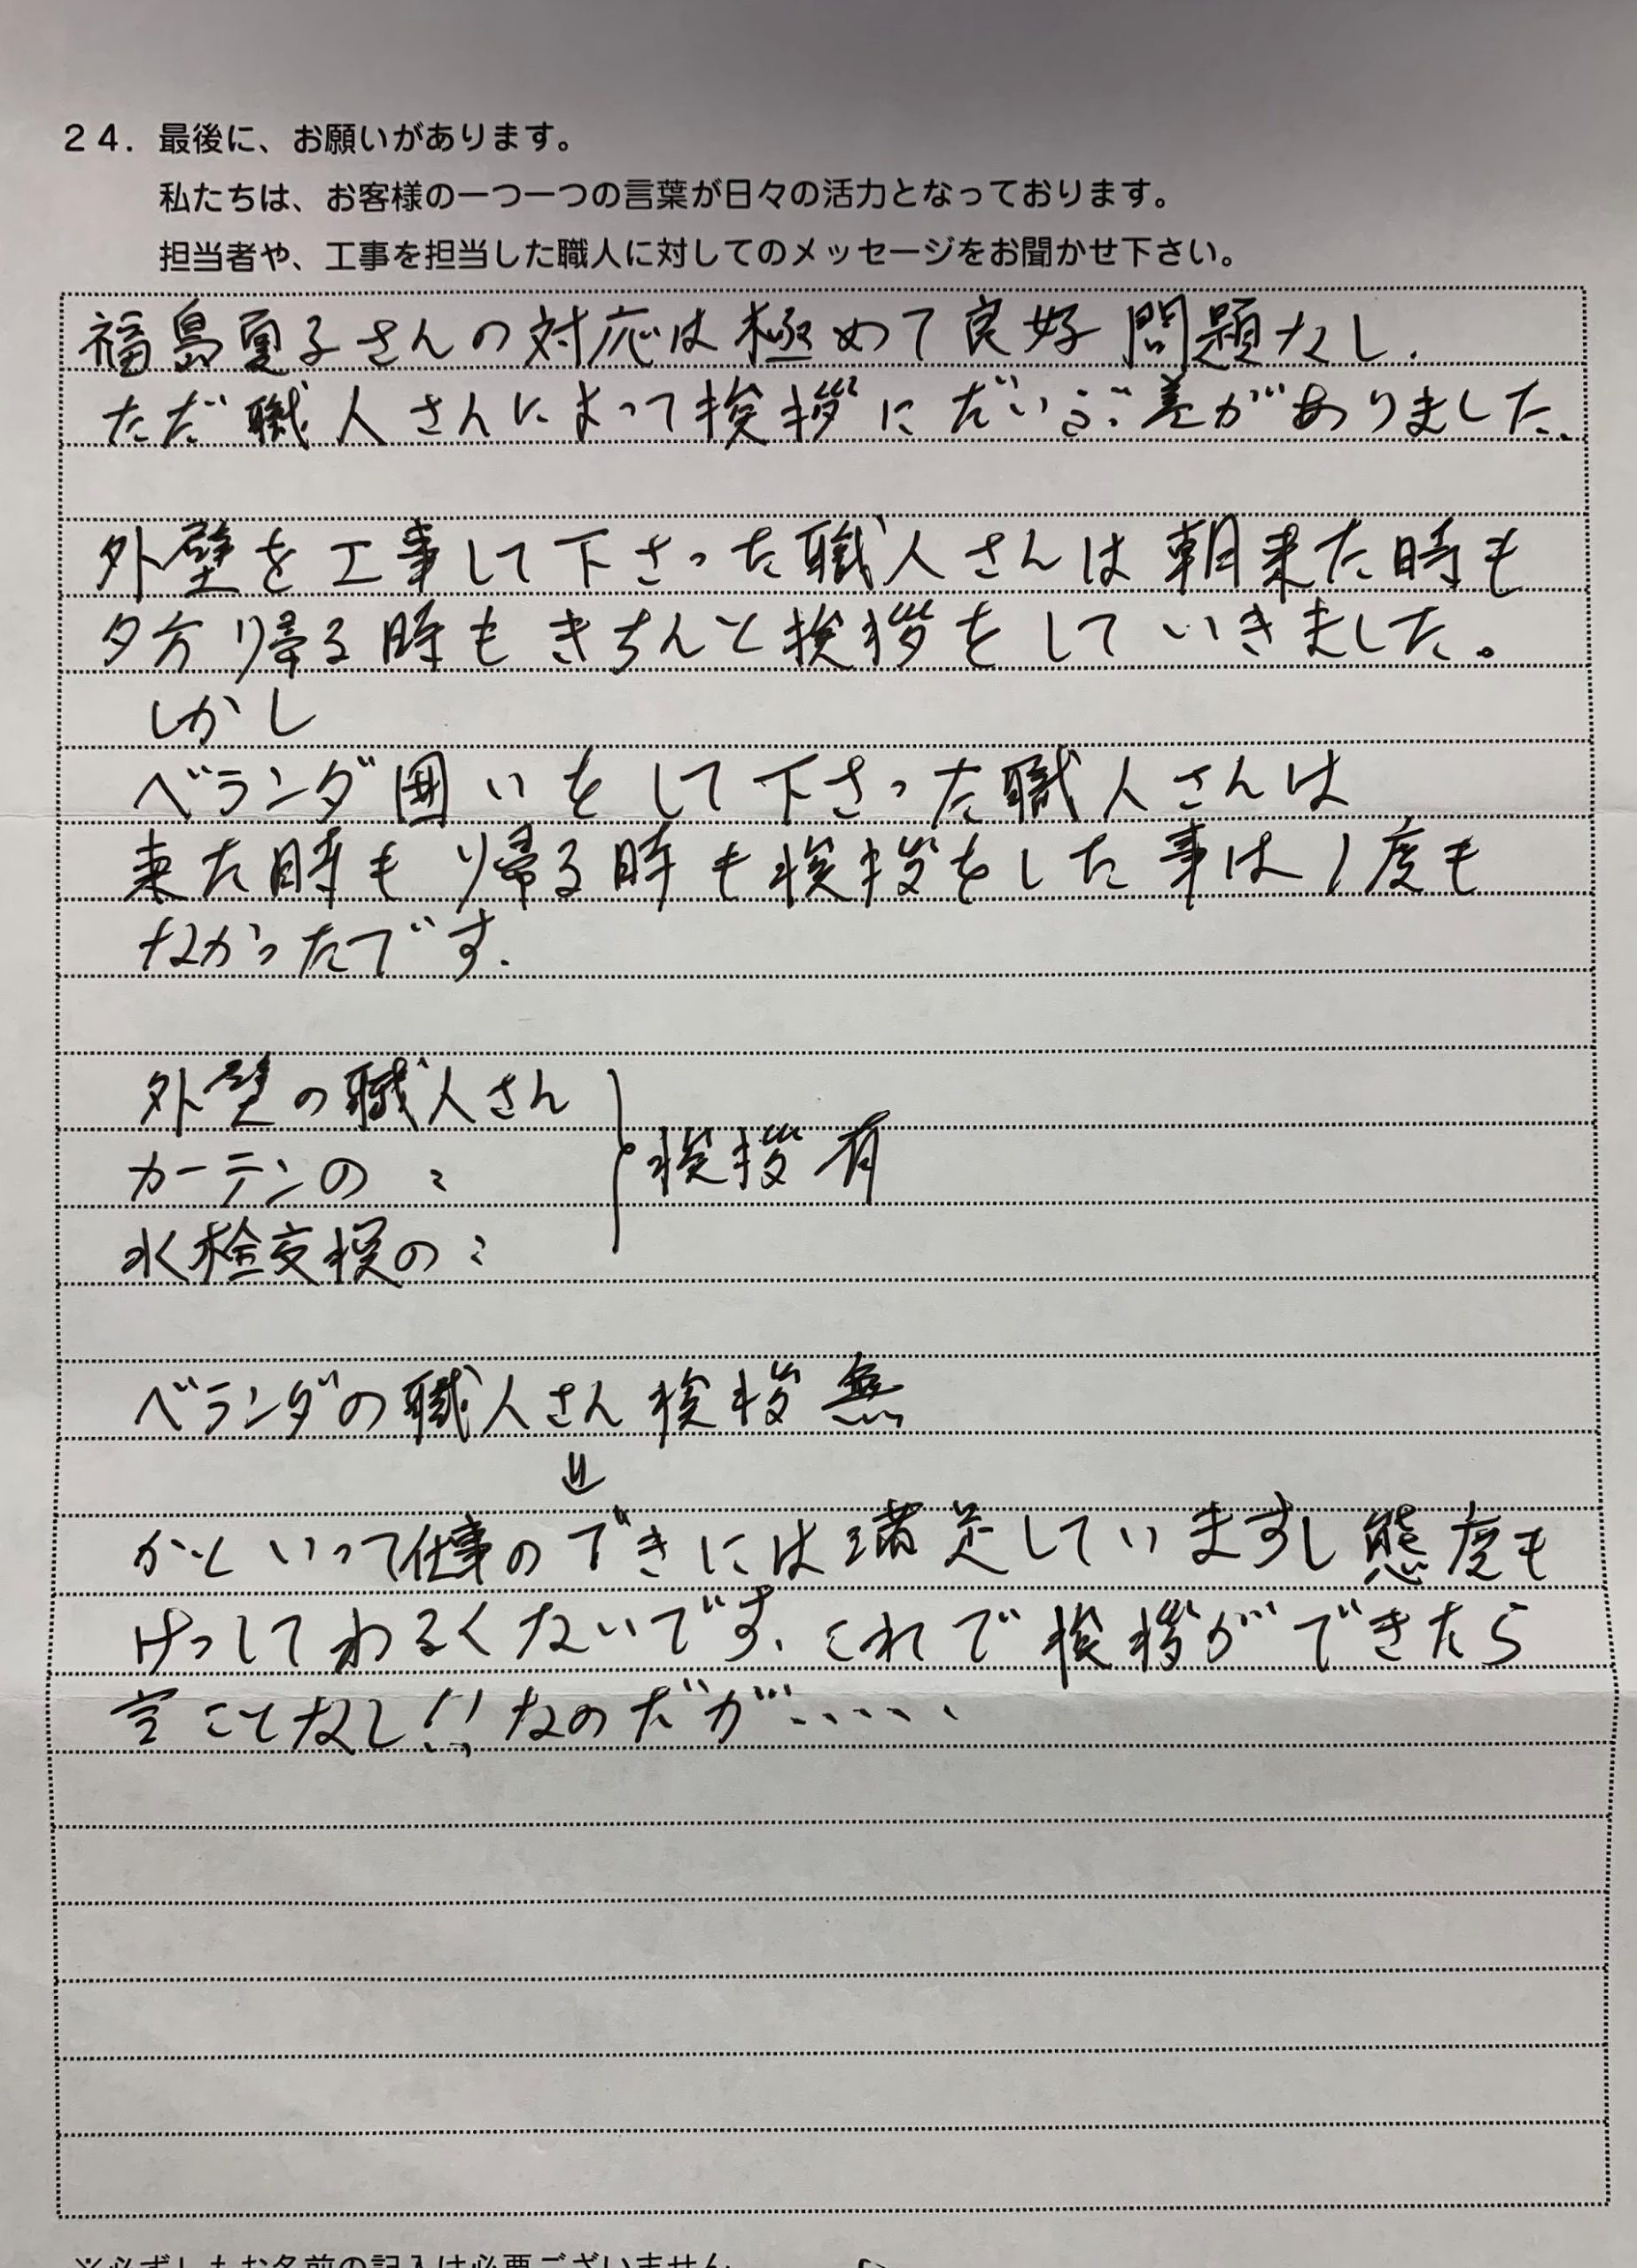 24．最後に、お願いがあります。
私たちは、お客様の一つ一つの言葉が日々の活力となっております。
担当者や、工事を担当した職人に対してのメッセージをお聞かせ下さい。
福島夏子さんの対応は極めて良好 問題なし.
ただ職人さんによって挨拶にだいぶ差がありました.
外壁を工事して下さった職人さんは朝来た時も
夕方帰る時もきちんと挨拶をしていきました。
しかし
ベランダ囲いをして下さった職人さんは
来た時も帰る時も挨拶をした事は1度も
なかったです.
外壁の職人さん
カーテンの 〃
挨拶有
水栓交換の〃
ベランダの職人さん 挨拶 無
⇓
かといって仕事のできには満足していますし態度も
けっしてわるくないです. これで挨拶ができたら
言ことなし!! なのだが……
※必ずしもお名前の記入は必要ございません